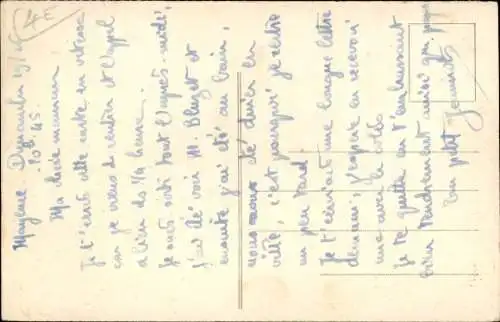 Mayence Dimanche
10h 45
Ma chère maman
Je t'écris cette carte en vitesse
car je viens de rentrer et l'appel
a lieu ds 1/4 heure.
Je suis sorti tout l'après-midi,
j'ai été voir M. Bluzet et
ensuite j'ai été au bain,
nous avons été dîner en
ville, c'est pourquoi je rentre
un peu tard.
Je t'écrirai une longue lettre
demain; j'espère en recevoir
une avec le colis
je te quitte en t'embrassant
bien tendrement ainsi que papa
ton petit